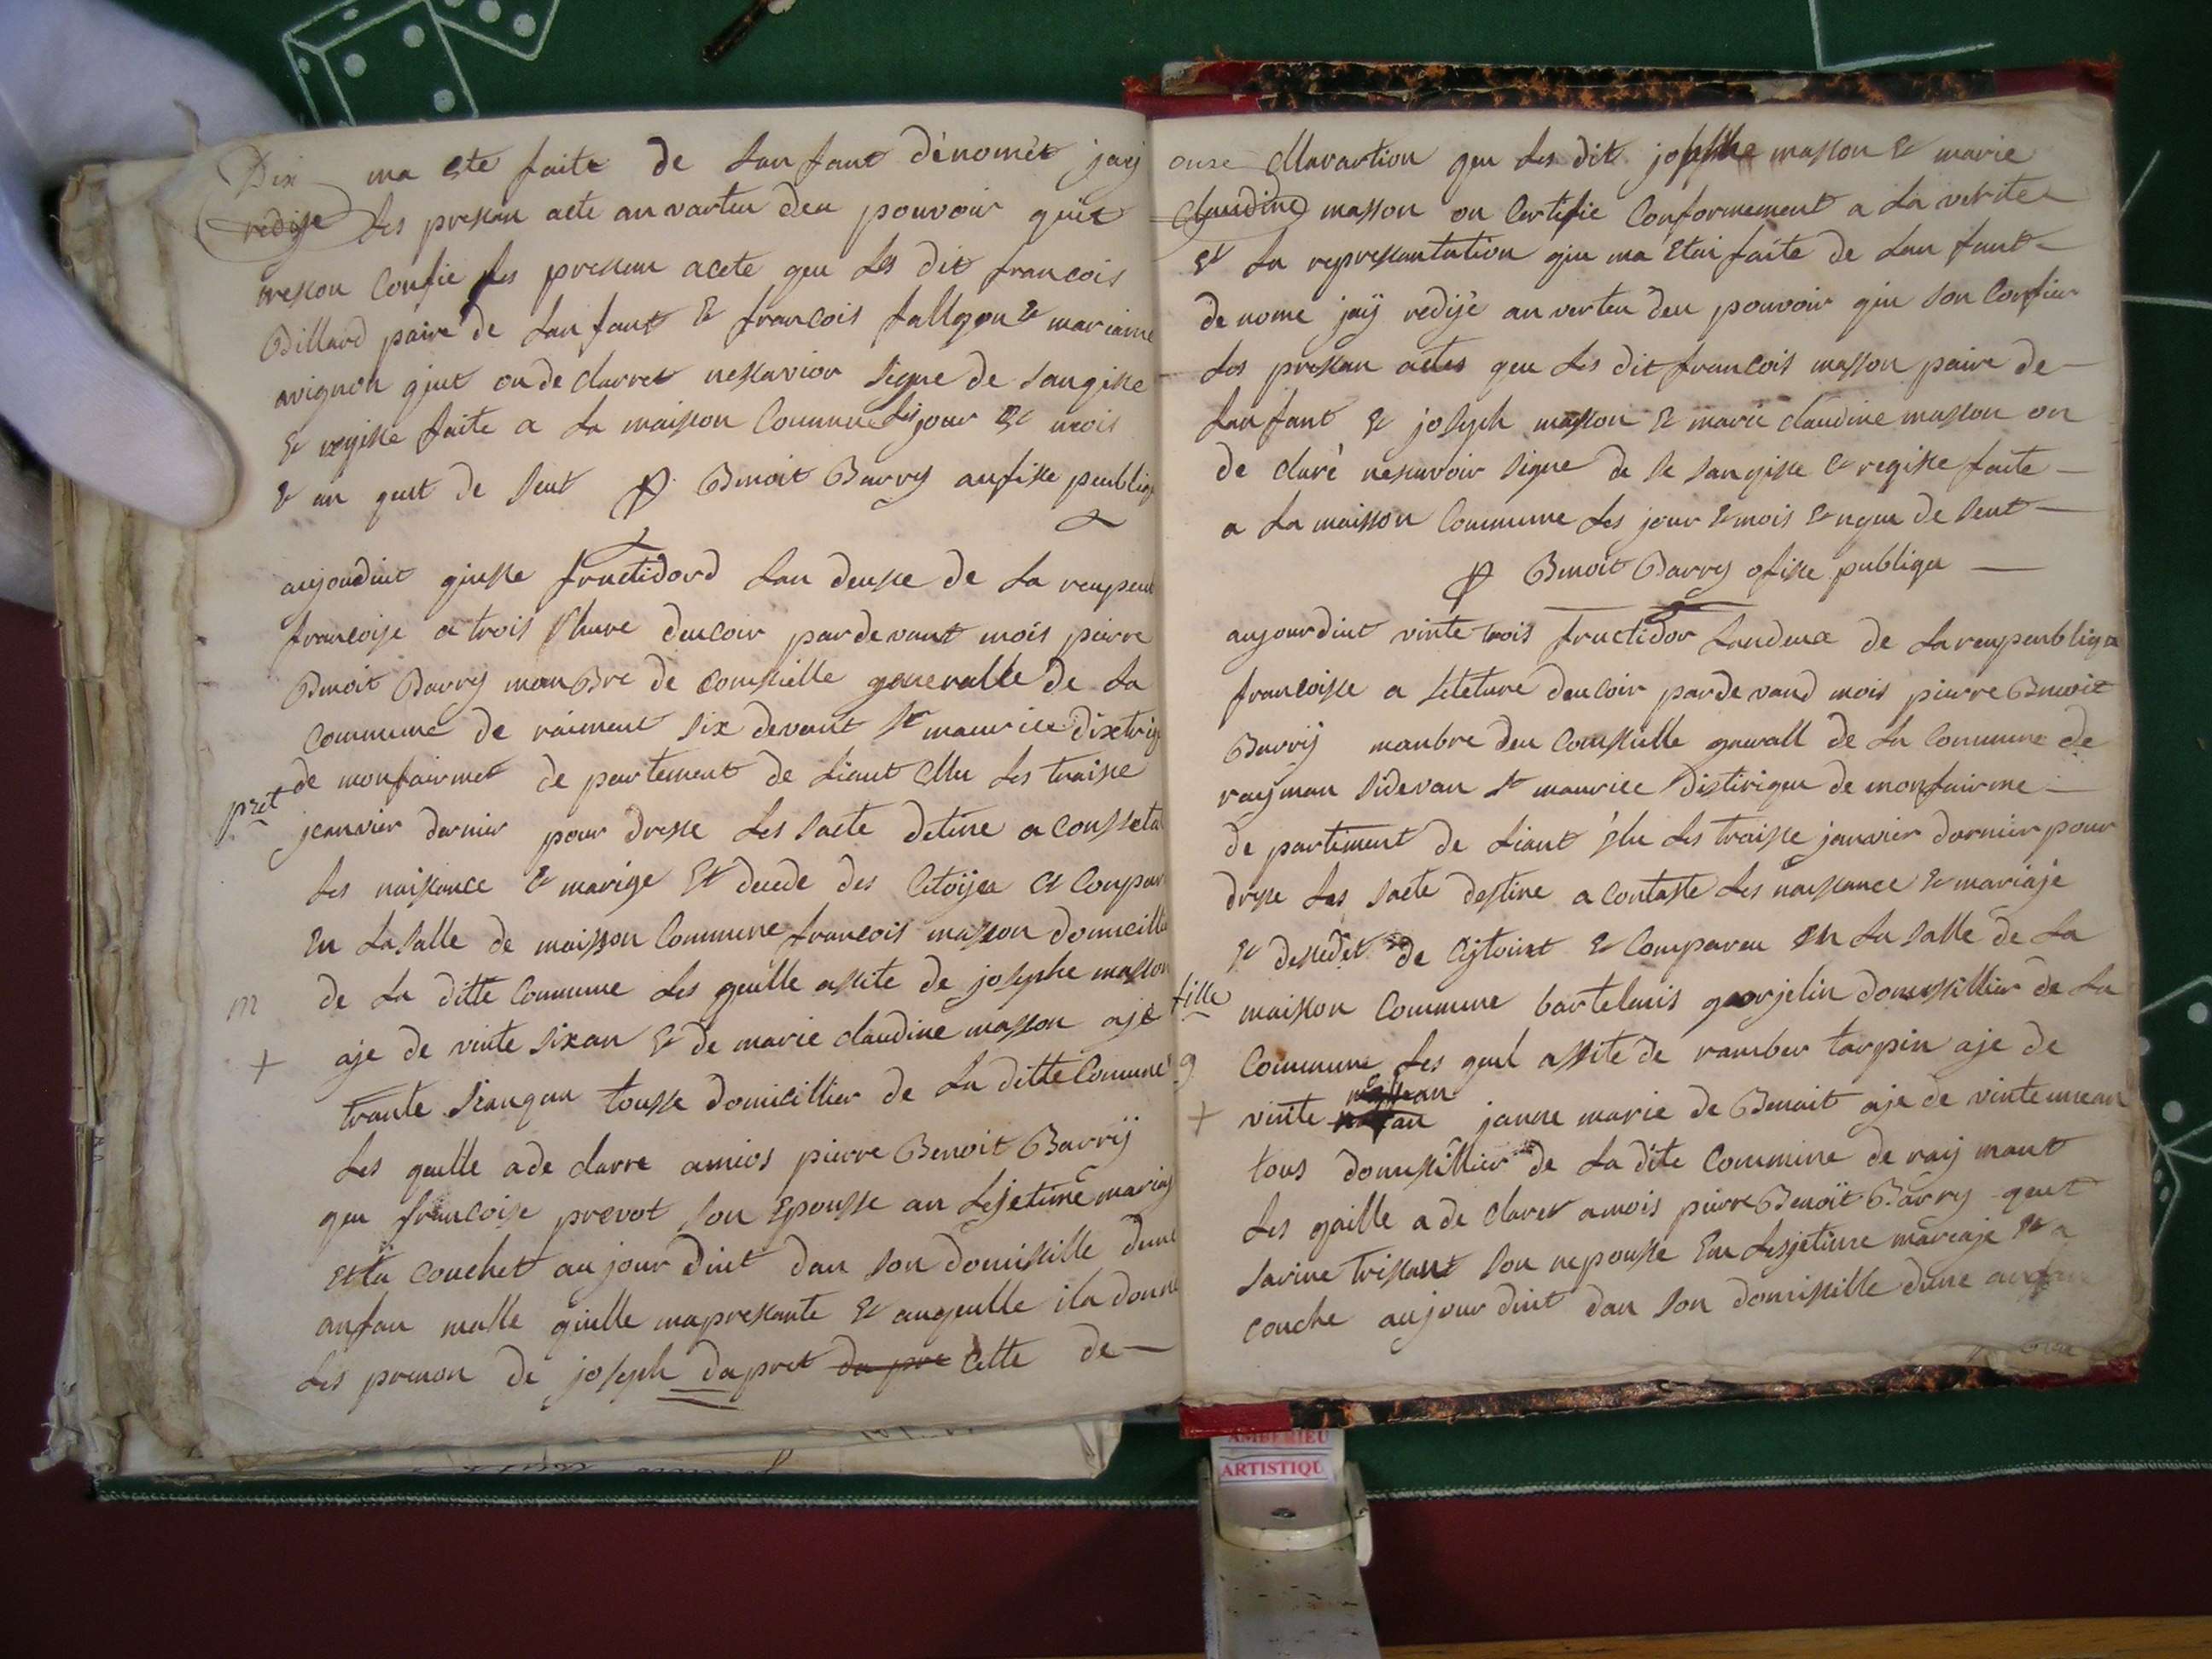 Dix ma ete faite de Lanfant dénomét jaij
redije Les pressan acte an vartu deu pouvoir quiet
messon Confie les pressan acete que Les dit francois
Billard paire de Lanfant & francois fallyon & marianne
avignon qiut on de clarret nessavior signe de sangisse
& regisse faite a La maisson Commune Les jour & mois
& an qust de seut P Benoit Barry aufise peublique
aujourduit qiusse fructidord Lan deuse de La reupeub
francoise a trois Lhure deucoir pardevant mois pierre
Benoit Barry manbre de Conssielle generalle de La
Commune de raiment six devant st maurice dixtrig
de monfairmet de partement de Liant Elu Les traisse
pret
jeanvier dernier pour dresse Les sacte detine a Conssetat
Les naissance & marige Et decede des Citoijen Et Conpar
En La Salle de maisson Commune francois masson domicillie
m
de La ditte Commune Les quelle assite de josephe masson
+
aje de vinte sixan & de marie claudine masson aje
trante sianqan tousse domicillier de La ditte Comune
Les quelle ade clarre amios pierre Benoit Barrij
que francoise prevot son Epousse an Lejetime mariaj
Etta couchet aujourduit dan son domissille dune
anfan malle quelle mapressante & auqeulle ila donne
Les prenon de joseph dapret da pre Cette de-
onse Claration que Les dit josephe masson & marie
Claudine masson on Certifie Conformement a La verite
et La repressantation qiu ma Etai faite de Lanfant
de nome jaij redije an vertu deu pouvoir qiu son Confier
Les pressan actes que Les dit francois masson paire de
Lanfant & joseph masson & marie claudine masson on
de claré nesavoir signe de se sangisse & regisse faite
a La maisson Commune Les jour & mois & nque de seut
P Benoit Barry ofise publique
aujourduit vinte trois fructidor Landeux de La reupeublique
francoisse a seteture deucoir pardevand mois pierre Benoit
Barrij manbre deu Conssielle genrall de La Commune de
rayman sidevan st maurice distrique de monfairme
de partiment de Liant Elu Les traisse janvier dornier pour
drise Les sacte destine a Contaste Les naissance & mariaje
& desedet de Cijtoint & Compareu En La salle de La
fille
maisson Commune bartelmis gorjelin domissillier de La
g
Commune Les quel assite de ramber tarpin aje de
+
vinte janne marie de Benoit aje de vinte uncan
tous domissillier de La dite Commune de raij mant
Les quille a de clarer amois pierre Benoit Barry queut
sarine trissant son nepousse En Lesjetime mariaje & a
couche aujourduit dan son domissille dune anfan
AMBERIEU
ARTISTIQU